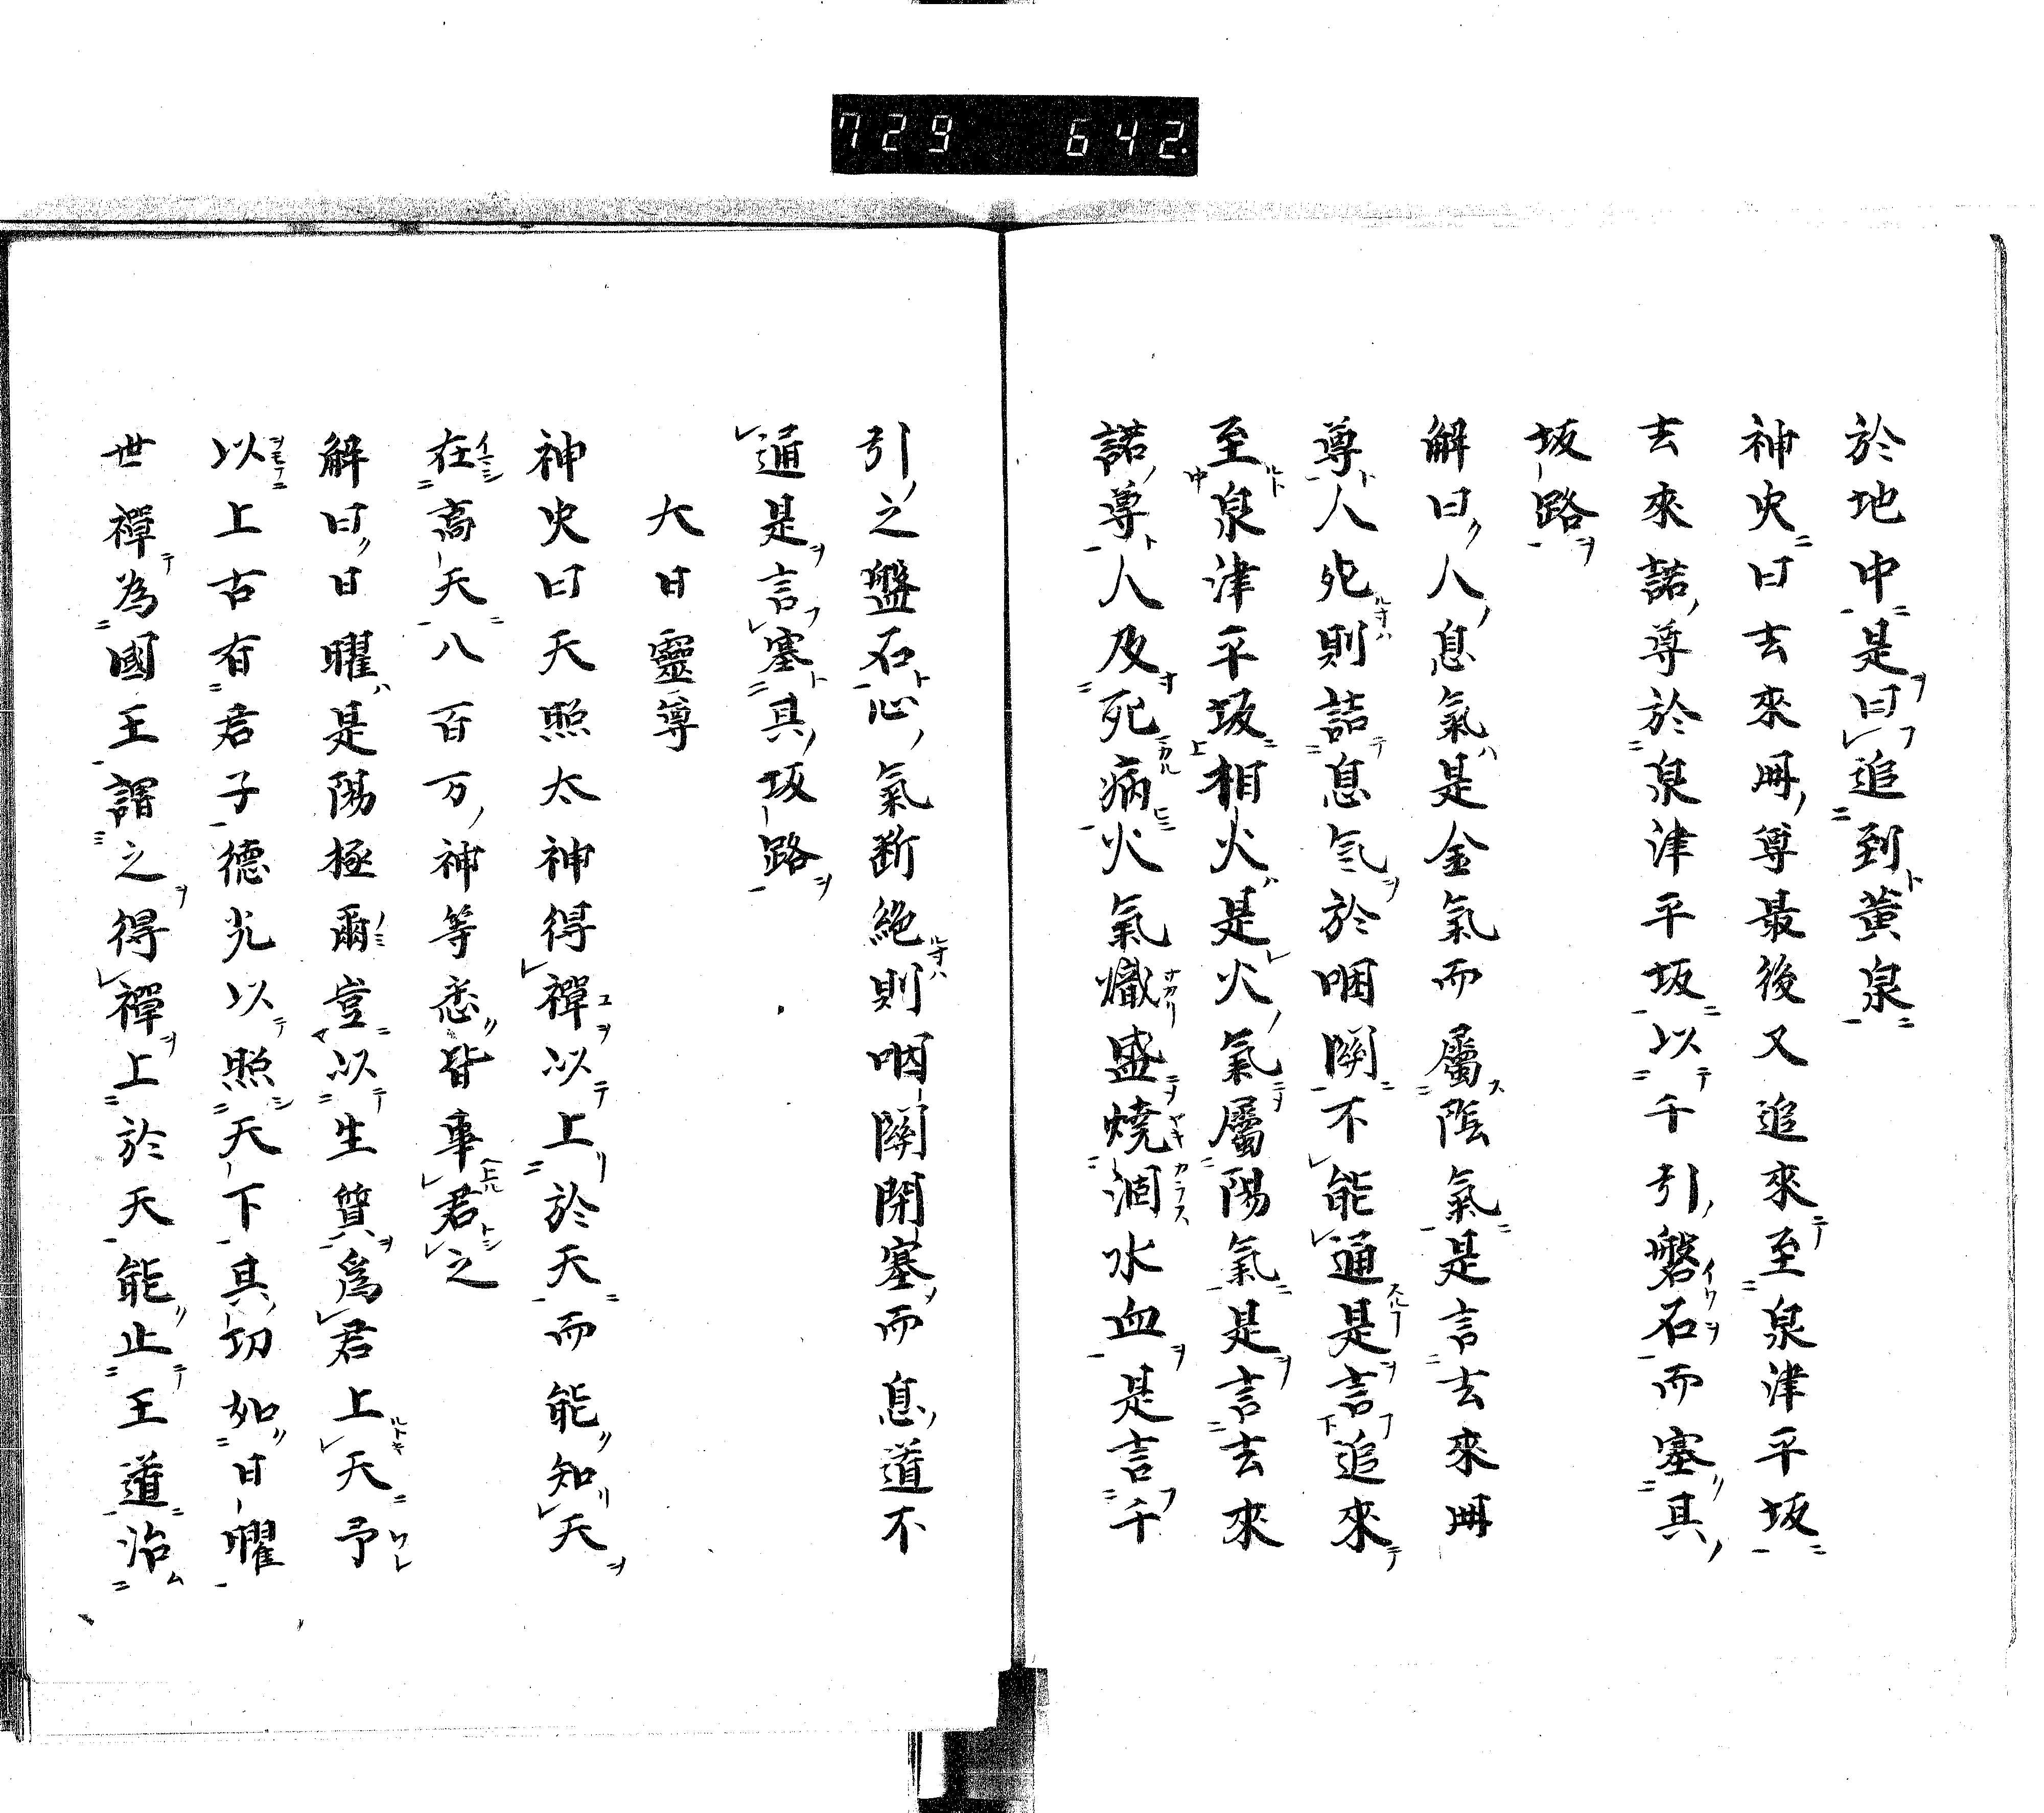 729 642.
於地中是曰追到黄泉
神史曰去來冊尊最後又追來至泉津平坂
去來諾尊於泉津平坂以千引磐石而塞其
坂路
解曰人息氣是金氣而屬陰氣是言去來冊
尊人死則詰息氣於咽関不能通是言追來
至泉津平坂相火是火氣屬陽氣是言去來
諾尊人及死病火氣熾盛燒涸水血是言千
引之盤石心氣断絶則咽関閉塞而息道不
通是言塞其坂路
大日靈尊
神史曰天照太神得禪以上於天而能知天
在高天八百万神等悉皆事君之
解曰日曜是陽極爾豈以生質為君上天予
以上古有君子德光以照天下其切如日曜
世禪為國王謂之得禪上於天能止王道治